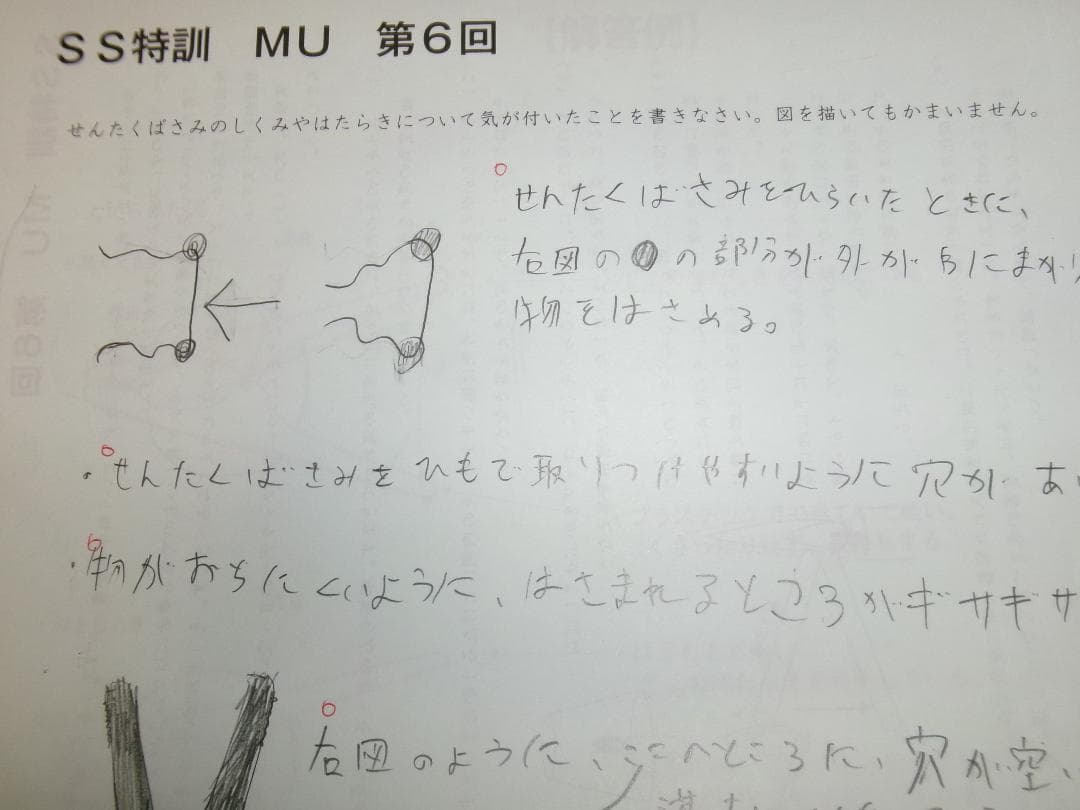 ＳＳ特訓　ＭＵ　第６回
せんたくばさみのしくみやはたらきについて気が付いたことを書きなさい。図を描いてもかまいません。
せんたくばさみをひらいたときに、
右図の●の部分が外がわにまがり
物をはさめる。
・せんたくばさみをひもで取りつけやすいように穴があ
・物がおちにくいように、はさまれるところがギザギザ
右図のように、ここのところに、穴が空、